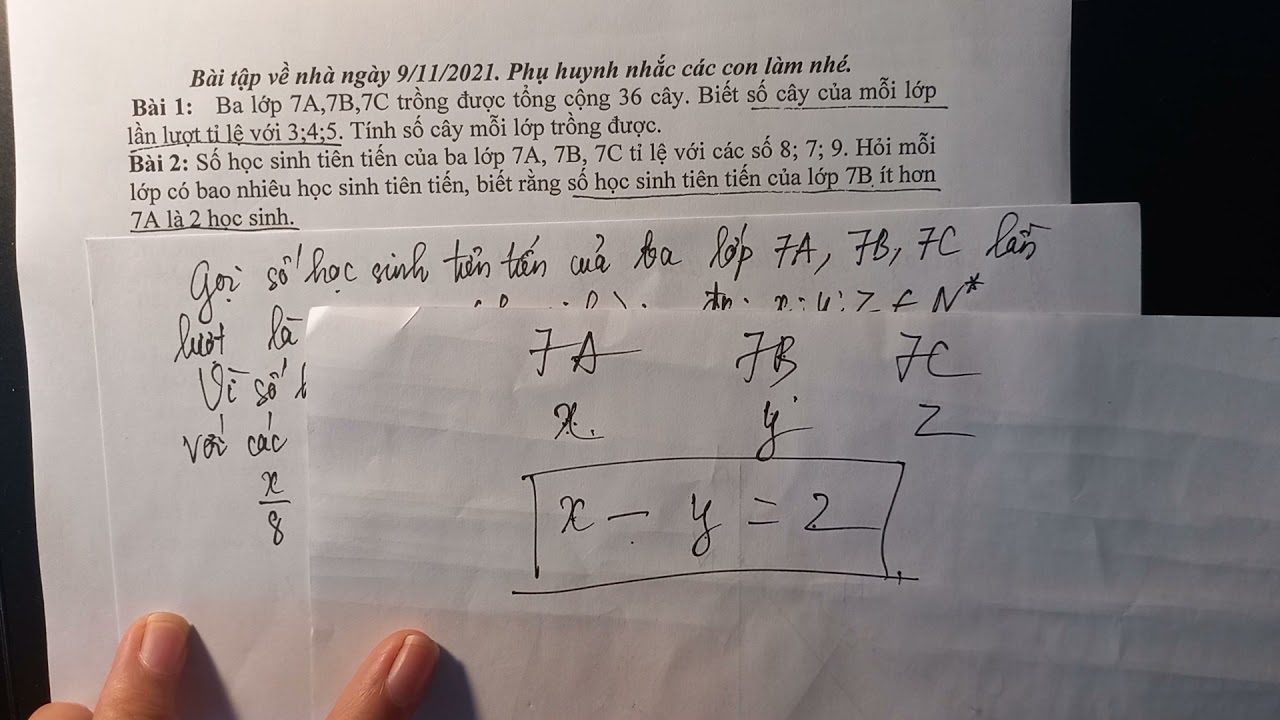 Bài tập về nhà ngày 9/11/2021. Phụ huynh nhắc các con làm nhé.
Bài 1: Ba lớp 7A,7B,7C trồng được tổng cộng 36 cây. Biết số cây của mỗi lớp
lần lượt tỉ lệ với 3;4;5. Tính số cây mỗi lớp trồng được.
Bài 2: Số học sinh tiên tiến của ba lớp 7A, 7B, 7C tỉ lệ với các số 8; 7; 9. Hỏi mỗi
lớp có bao nhiêu học sinh tiên tiến, biết rằng số học sinh tiên tiến của lớp 7B ít hơn
7A là 2 học sinh.
Gọi số học sinh tiên tiến của ba lớp 7A, 7B, 7C lần
lượt là x; y; z ∈ N*
Vì số
với các
x
8
7A 7B 7C
x y z
x - y = 2